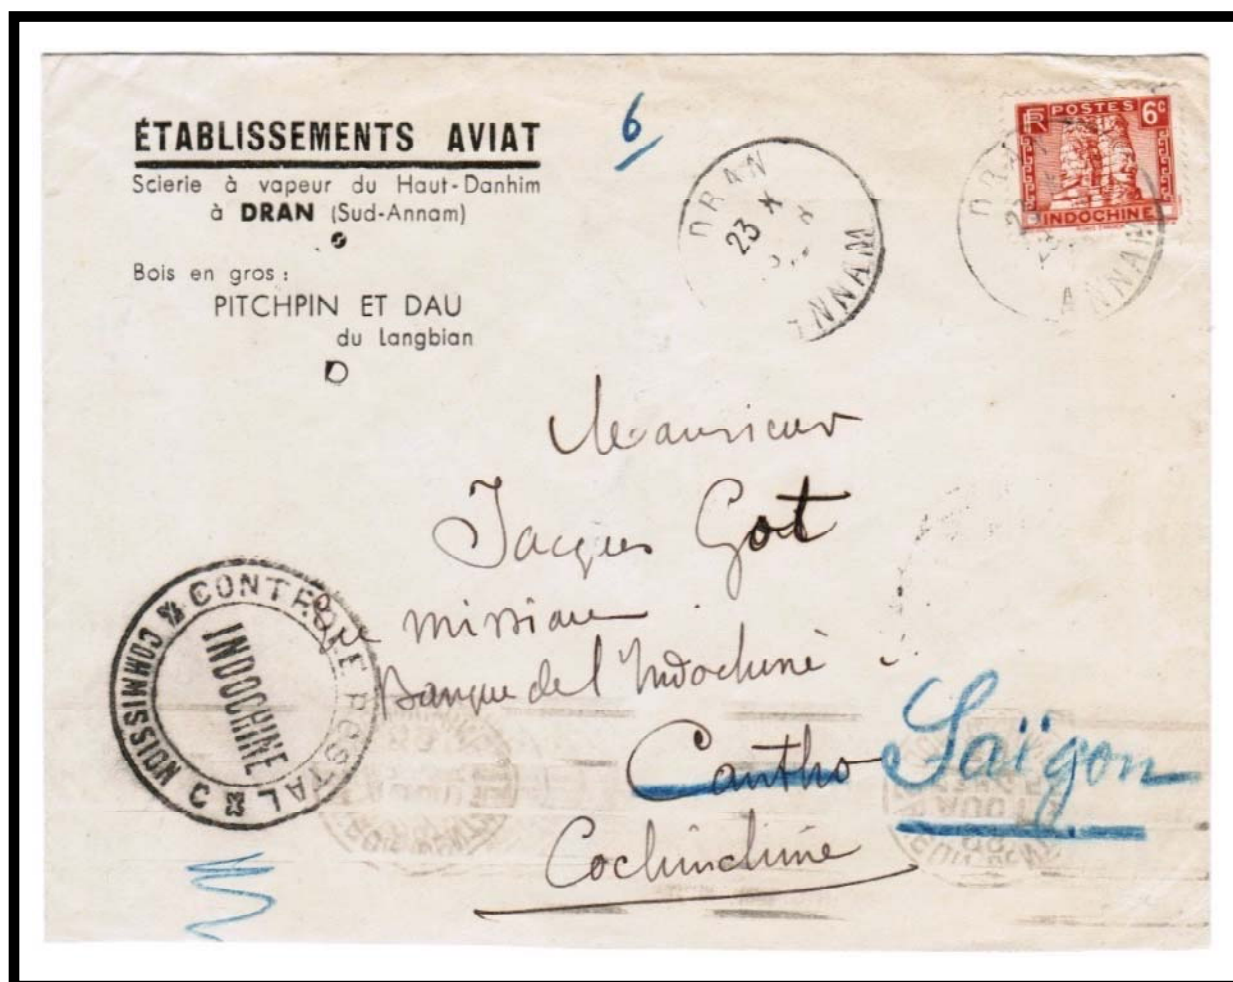 ÉTABLISSEMENTS AVIAT
Scierie à vapeur du Haut-Danhim
à DRAN (Sud-Annam)
Bois en gros :
PITCHPIN ET DAU
du Langbian
6
DRAN
23
ANNAM
RF POSTES 6c
INDOCHINE
DRAN
ANNAM
Monsieur
Jacques Got
en mission
Banque de l'Indochine
Cantho Saïgon
Cochinchine
CONTROLE POSTAL
COMMISSION C
INDOCHINE